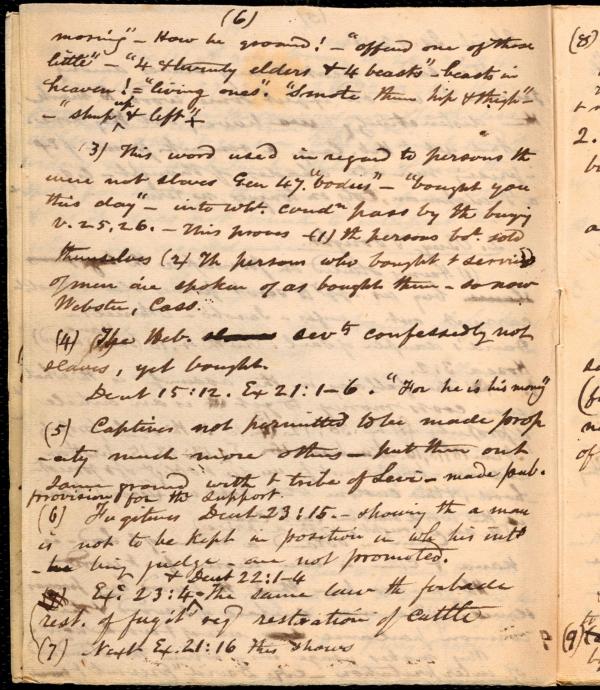 (6)
mosing" – How he ground! – "offend one of these
little" – "4 & twenty elders & 4 beasts" – beasts in
heaven! = "living ones". "Smote them hip & thigh" –
– "shut up & left"
(3) This word used in regard to persons th
were not slaves Gen 47. "bodies" – "bought you
this day" – into wht. condn pass by the buyg
v. 25. 26. – This proves – (1) th persons bot. sold
themselves (2) Th persons who bought & services
of men are spoken of as bought them – so now
Webster, Cass.
(4) The Heb. slaves sevts confessedly not
slaves, yet bought.
Deut 15:12. Ex 21:1–6. "For he is his money"
(5) Captives not permitted to be made prop
–erty much more others – put them on t
same ground with t tribe of Levi – made pub.
provision for the support.
(6) Fugitives Deut 23:15 – showing th a man
is not to be kept in position in wh his intt
– he being judge – are not promoted.
& Deut 22:1–4
Ex. 23:4 – The same law th forbade
rest. of fugit reqd restoration of cattle
(7) Next Ex. 21:16 This shows
(8)
2.
(9)